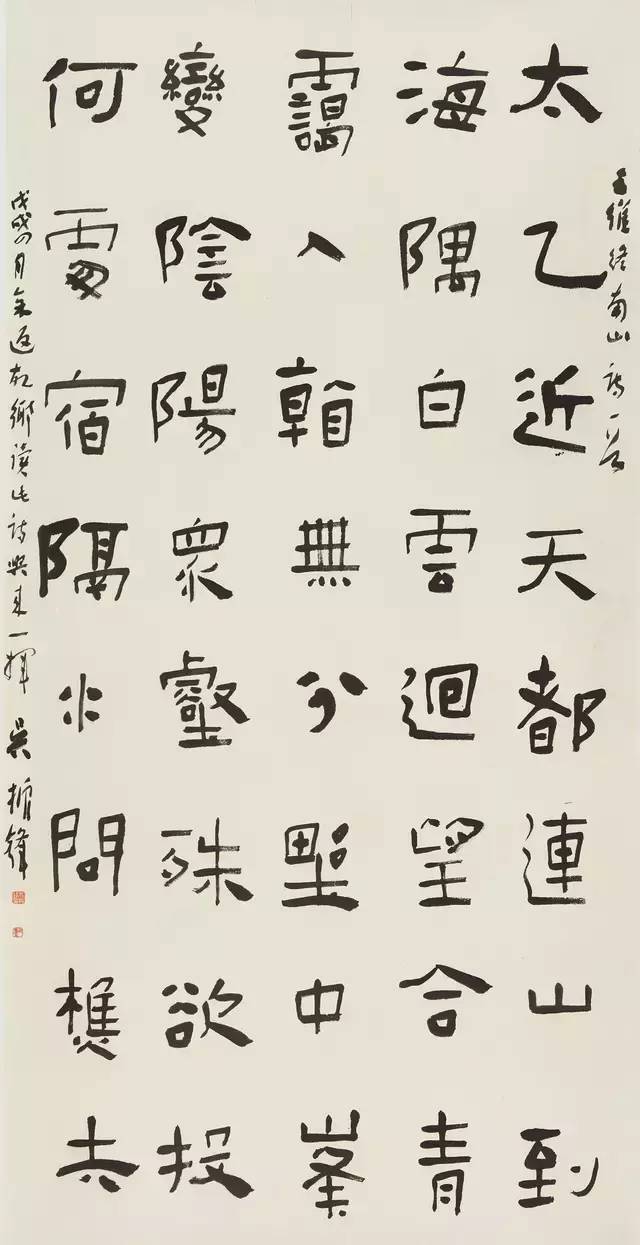 王維終南山詩一首
太乙近天都連山到
海隅白雲迴望合青
靄入看無分野中峯
變陰陽衆壑殊欲投
何處宿隔水問樵夫
戊戌四月余返故鄉讀此詩興來一揮 吳振鋒